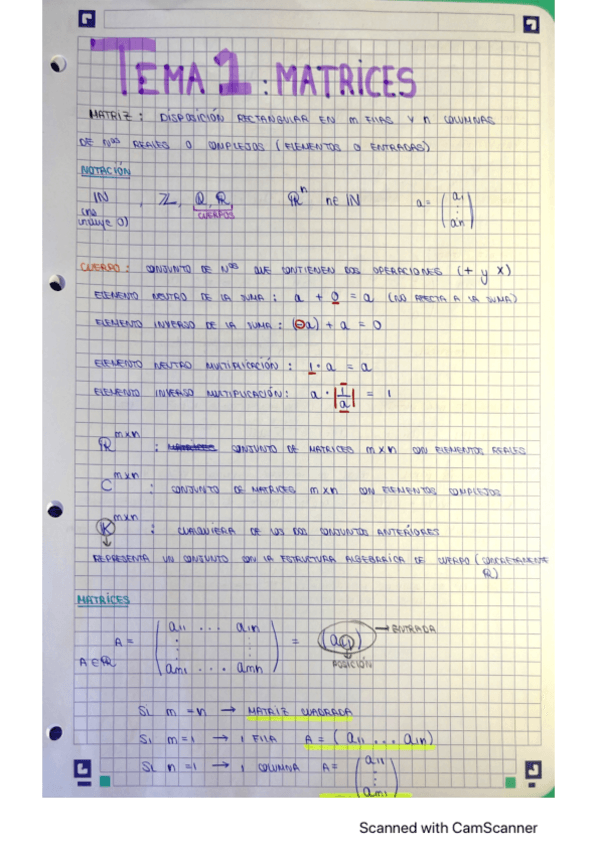 TEMA 1: MATRICES
MATRIZ: DISPOSICIÓN RECTANGULAR EN m FILAS Y n COLUMNAS
DE Nºs REALES O COMPLEJOS (ELEMENTOS O ENTRADAS)
NOTACIÓN
ℕ, ℤ, ℚ, ℝ, ℝⁿ n∈ℕ a = (a₁ ⋮ aₙ)
(no incluye 0) CUERPOS
CUERPO: CONJUNTO DE Nºs QUE CONTIENEN DOS OPERACIONES (+ y x)
ELEMENTO NEUTRO DE LA SUMA: a + 0 = a (NO AFECTA A LA SUMA)
ELEMENTO INVERSO DE LA SUMA: (-a) + a = 0
ELEMENTO NEUTRO MULTIPLICACIÓN: 1·a = a
ELEMENTO INVERSO MULTIPLICACIÓN: a·|1/a| = 1
ℝ^mxn: MATRICES CONJUNTO DE MATRICES mxn CON ELEMENTOS REALES
C^mxn: CONJUNTO DE MATRICES mxn CON ELEMENTOS COMPLEJOS
K^mxn: CUALQUIERA DE LOS DOS CONJUNTOS ANTERIORES
REPRESENTA UN CONJUNTO CON LA ESTRUCTURA ALGEBRAICA DE CUERPO (CONCRETAMENTE
ℝ)
MATRICES
A = (a₁₁ ... a₁ₙ ⋮ ⋮ aₘ₁ ... aₘₙ) = (aᵢⱼ) → ENTRADA
A∈ℝ POSICIÓN
Si m = n → MATRIZ CUADRADA
Si m = 1 → 1 FILA A = (a₁₁ ... a₁ₙ)
Si n = 1 → 1 COLUMNA A = (a₁₁ ⋮ aₘ₁)
Scanned with CamScanner